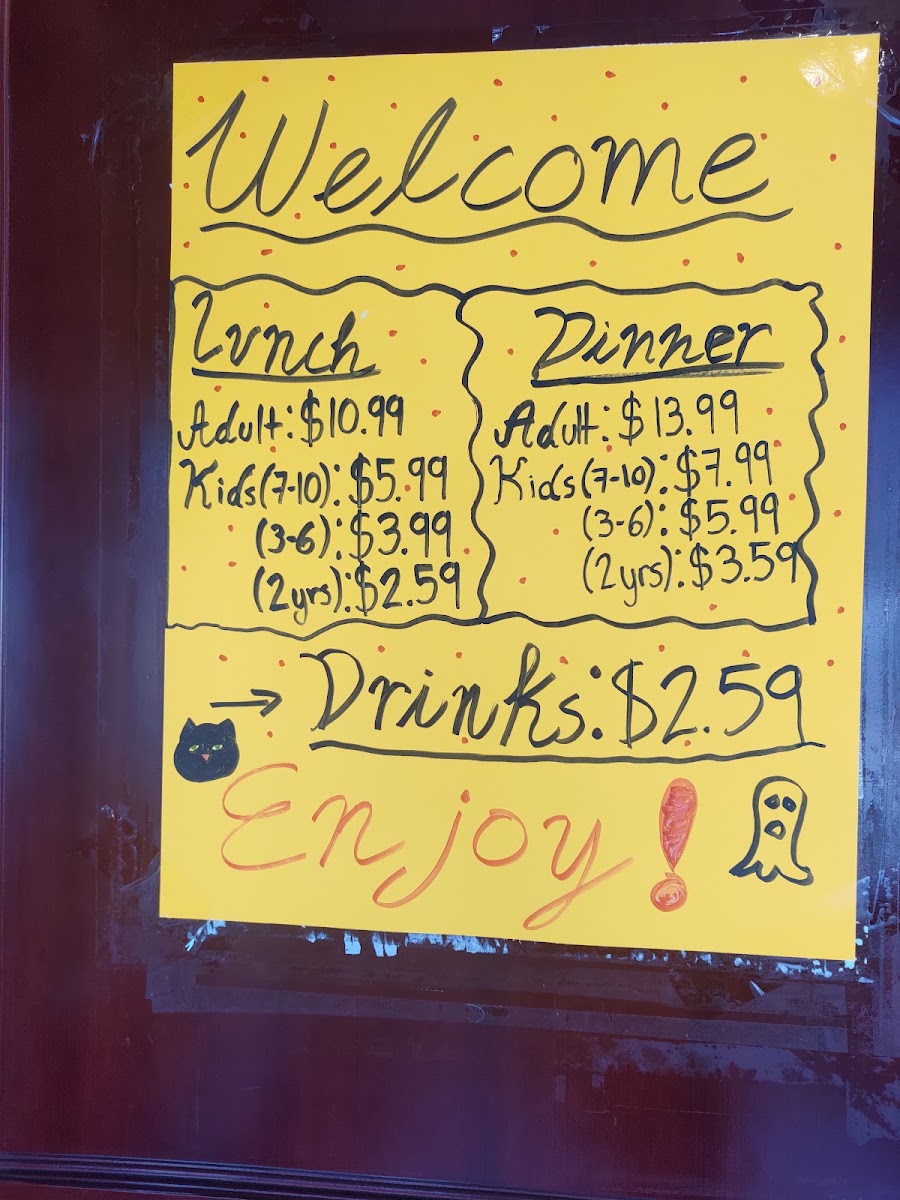 Welcome
Lunch
Adult: $10.99
Kids (7-10): $5.99
(3-6): $3.99
(2yrs): $2.59
Dinner
Adult: $13.99
Kids (7-10): $7.99
(3-6): $5.99
(2yrs): $3.59
→ Drinks: $2.59
Enjoy!